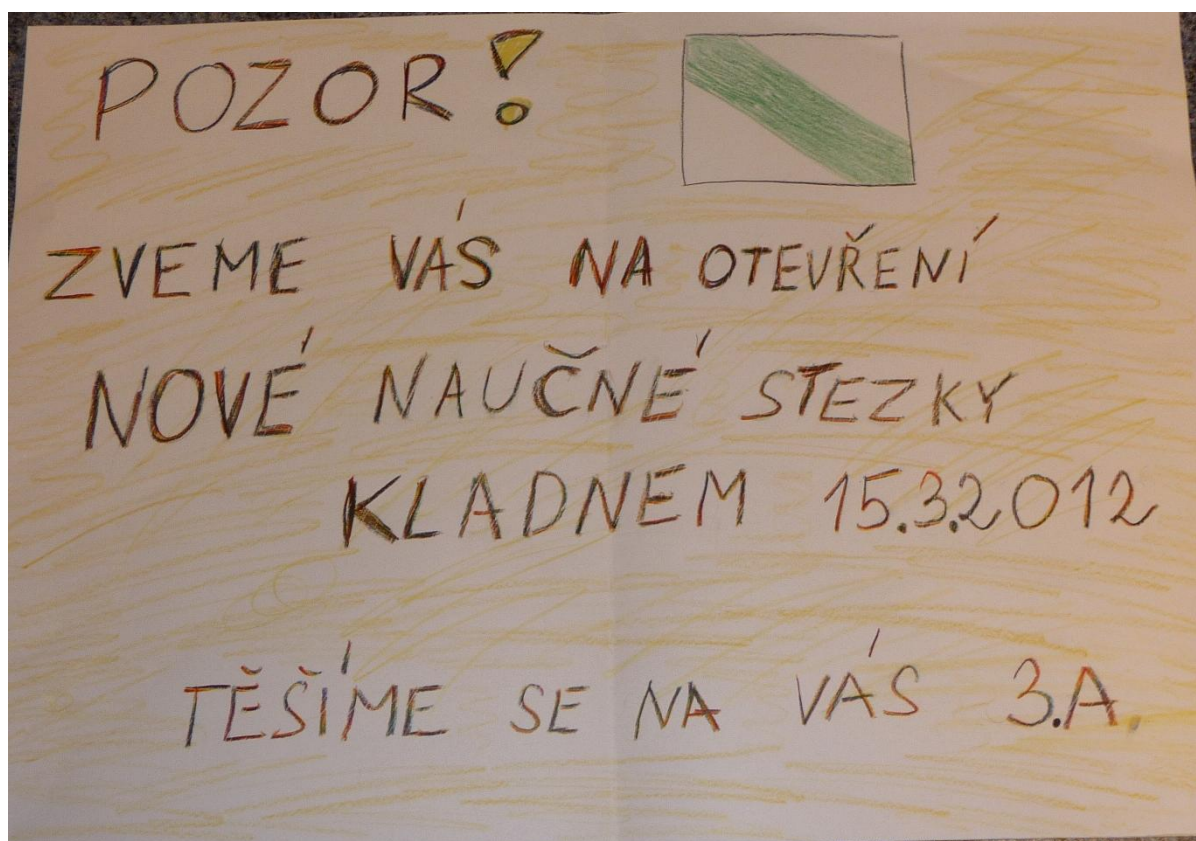 POZOR!
ZVEME VÁS NA OTEVŘENÍ
NOVÉ NAUČNÉ STEZKY
KLADNEM 15.3.2012
TĚŠÍME SE NA VÁS 3.A.